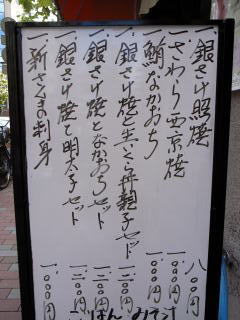 一、銀さけ照焼 八〇〇円
一、さわら西京焼 一、〇〇〇円
一、鮪なかおち 一、〇〇〇円
一、銀さけ焼と生いくら丼親子セット 一、二〇〇円
一、銀さけ焼となかおちセット 一、二〇〇円
一、銀さけ焼と明太子セット 一、〇〇〇円
一、新さんまの刺身 一、〇〇〇円
ごはん みそ汁